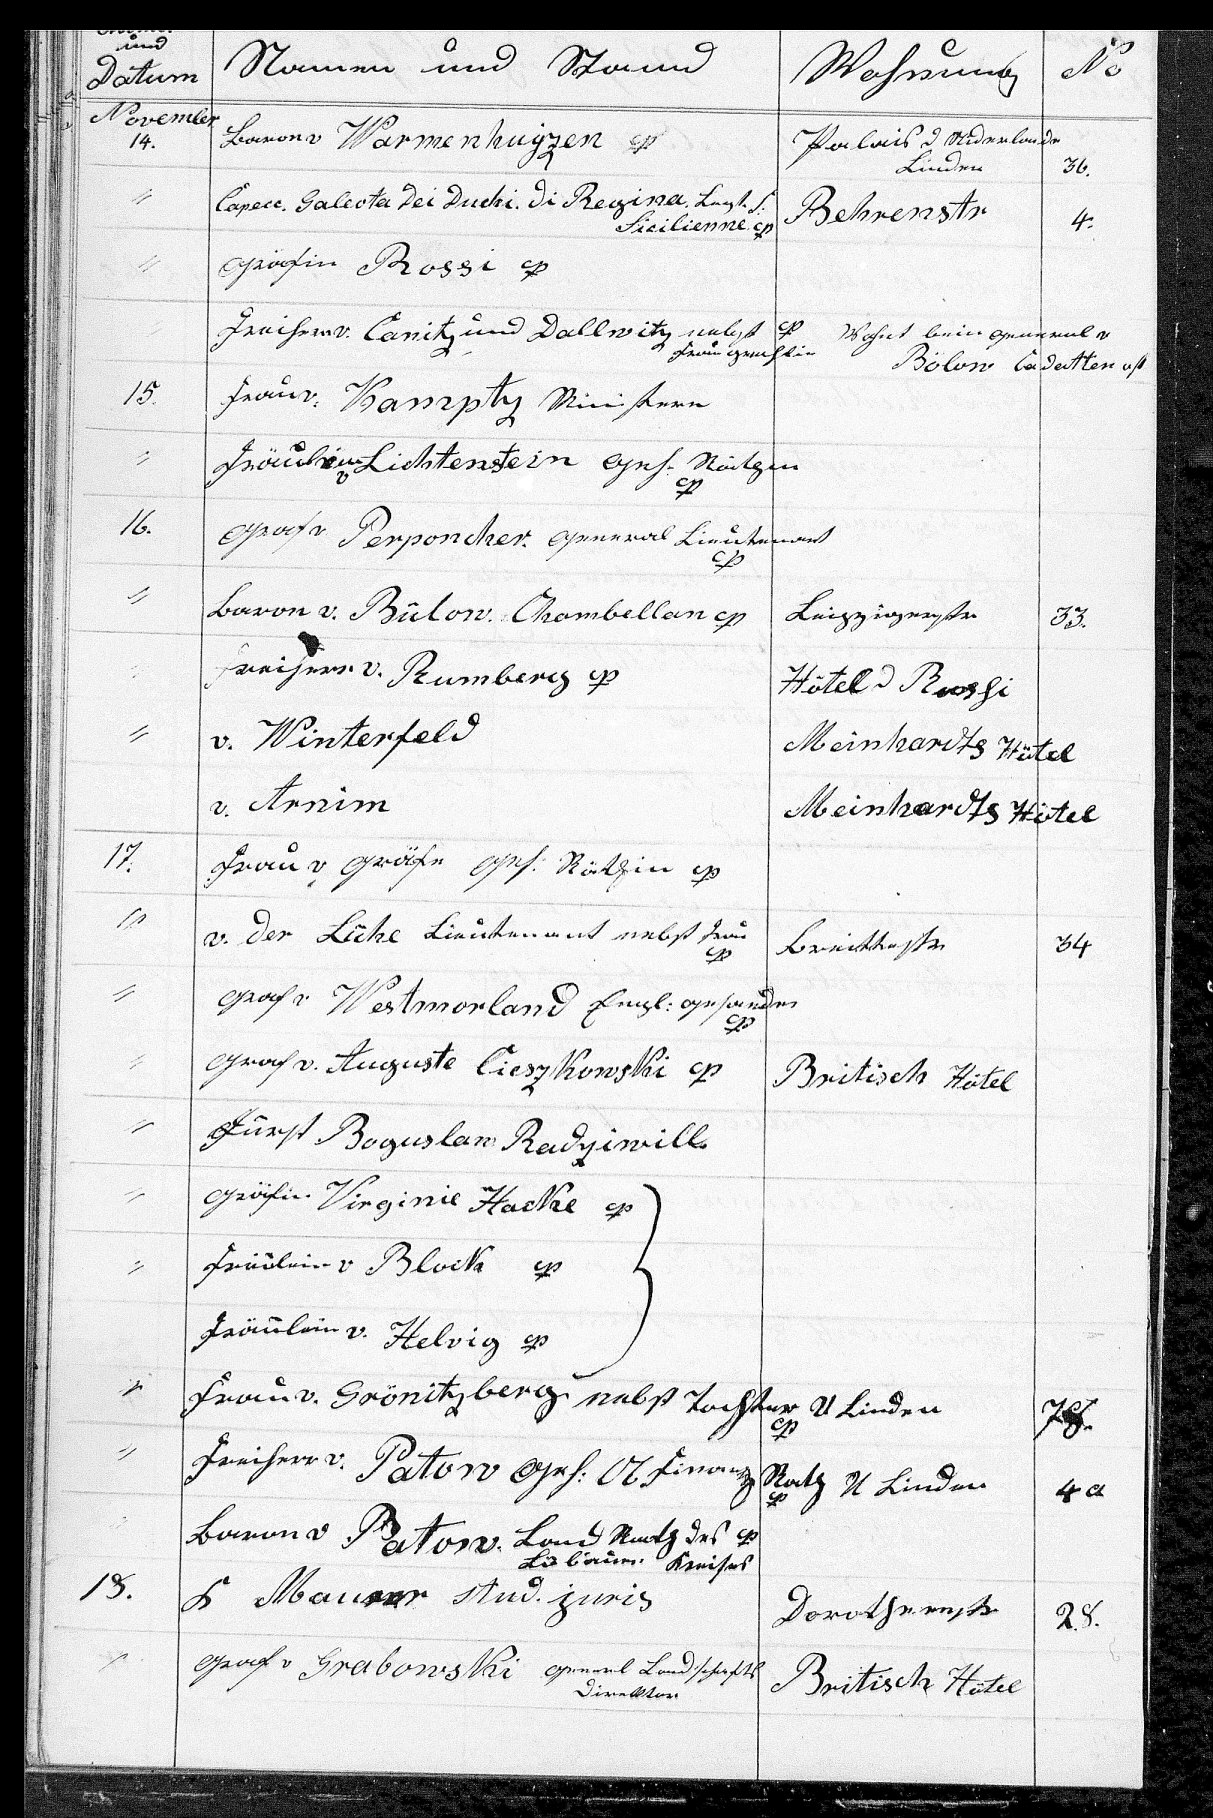 und
Datum Namen und Stand Wohnung No
November
14. Baron v Warmenhuizen cp Palais d Niderlande
Linden 36.
" Capece. Galeota dei Duchi. di Regina. Legt. S.
Sicilienne. cp Behrenstr 4.
" Gräfin Rossi cp
Freiherr v. Canitz und Dallwitz nebst cp Wohnt beim General v
Frau Gemahlin Bölow Cadetten
15. Frau v. Kamptz Ministern
" Fräulein v Lichtenstein Geh. Räthin
cp
16. Graf v Perponcher. General Lieutenant
cp
" Baron v. Bülow. Chambellan cp Leipzigerstr 33.
Freiherr v. Rumberg cp Hôtel d Russi
" v. Winterfeld Meinhardts Hôtel
v. Arnim Meinhardts Hôtel
17. Frau v Gräfe Geh. Räthin cp
" v. der Lühe Lieutenant nebst Frau
cp Breitestr 34
" Graf v Westmorland Engl: Gesander
cp
" Graf v. Auguste Cieszkowski cp Britisch Hôtel
" Fürst Boguslaw Radziwill.
" Gräfin Virginie Hacke cp
" Fräulein v Block cp
Fräulein v. Helvig cp
" Frau v. Grönitzberg nebst Tochter U Linden 78.
cp
" Freiherr v. Patow Geh: Ob. Finanz Rath U Linden 4a
cp
" Baron v Patow. Land Rath des cp
Kreises
18. Maurer stud. juris Dorotheenstr 28.
" Graf v Grabowski General Landschafts
Direktor Britisch Hôtel